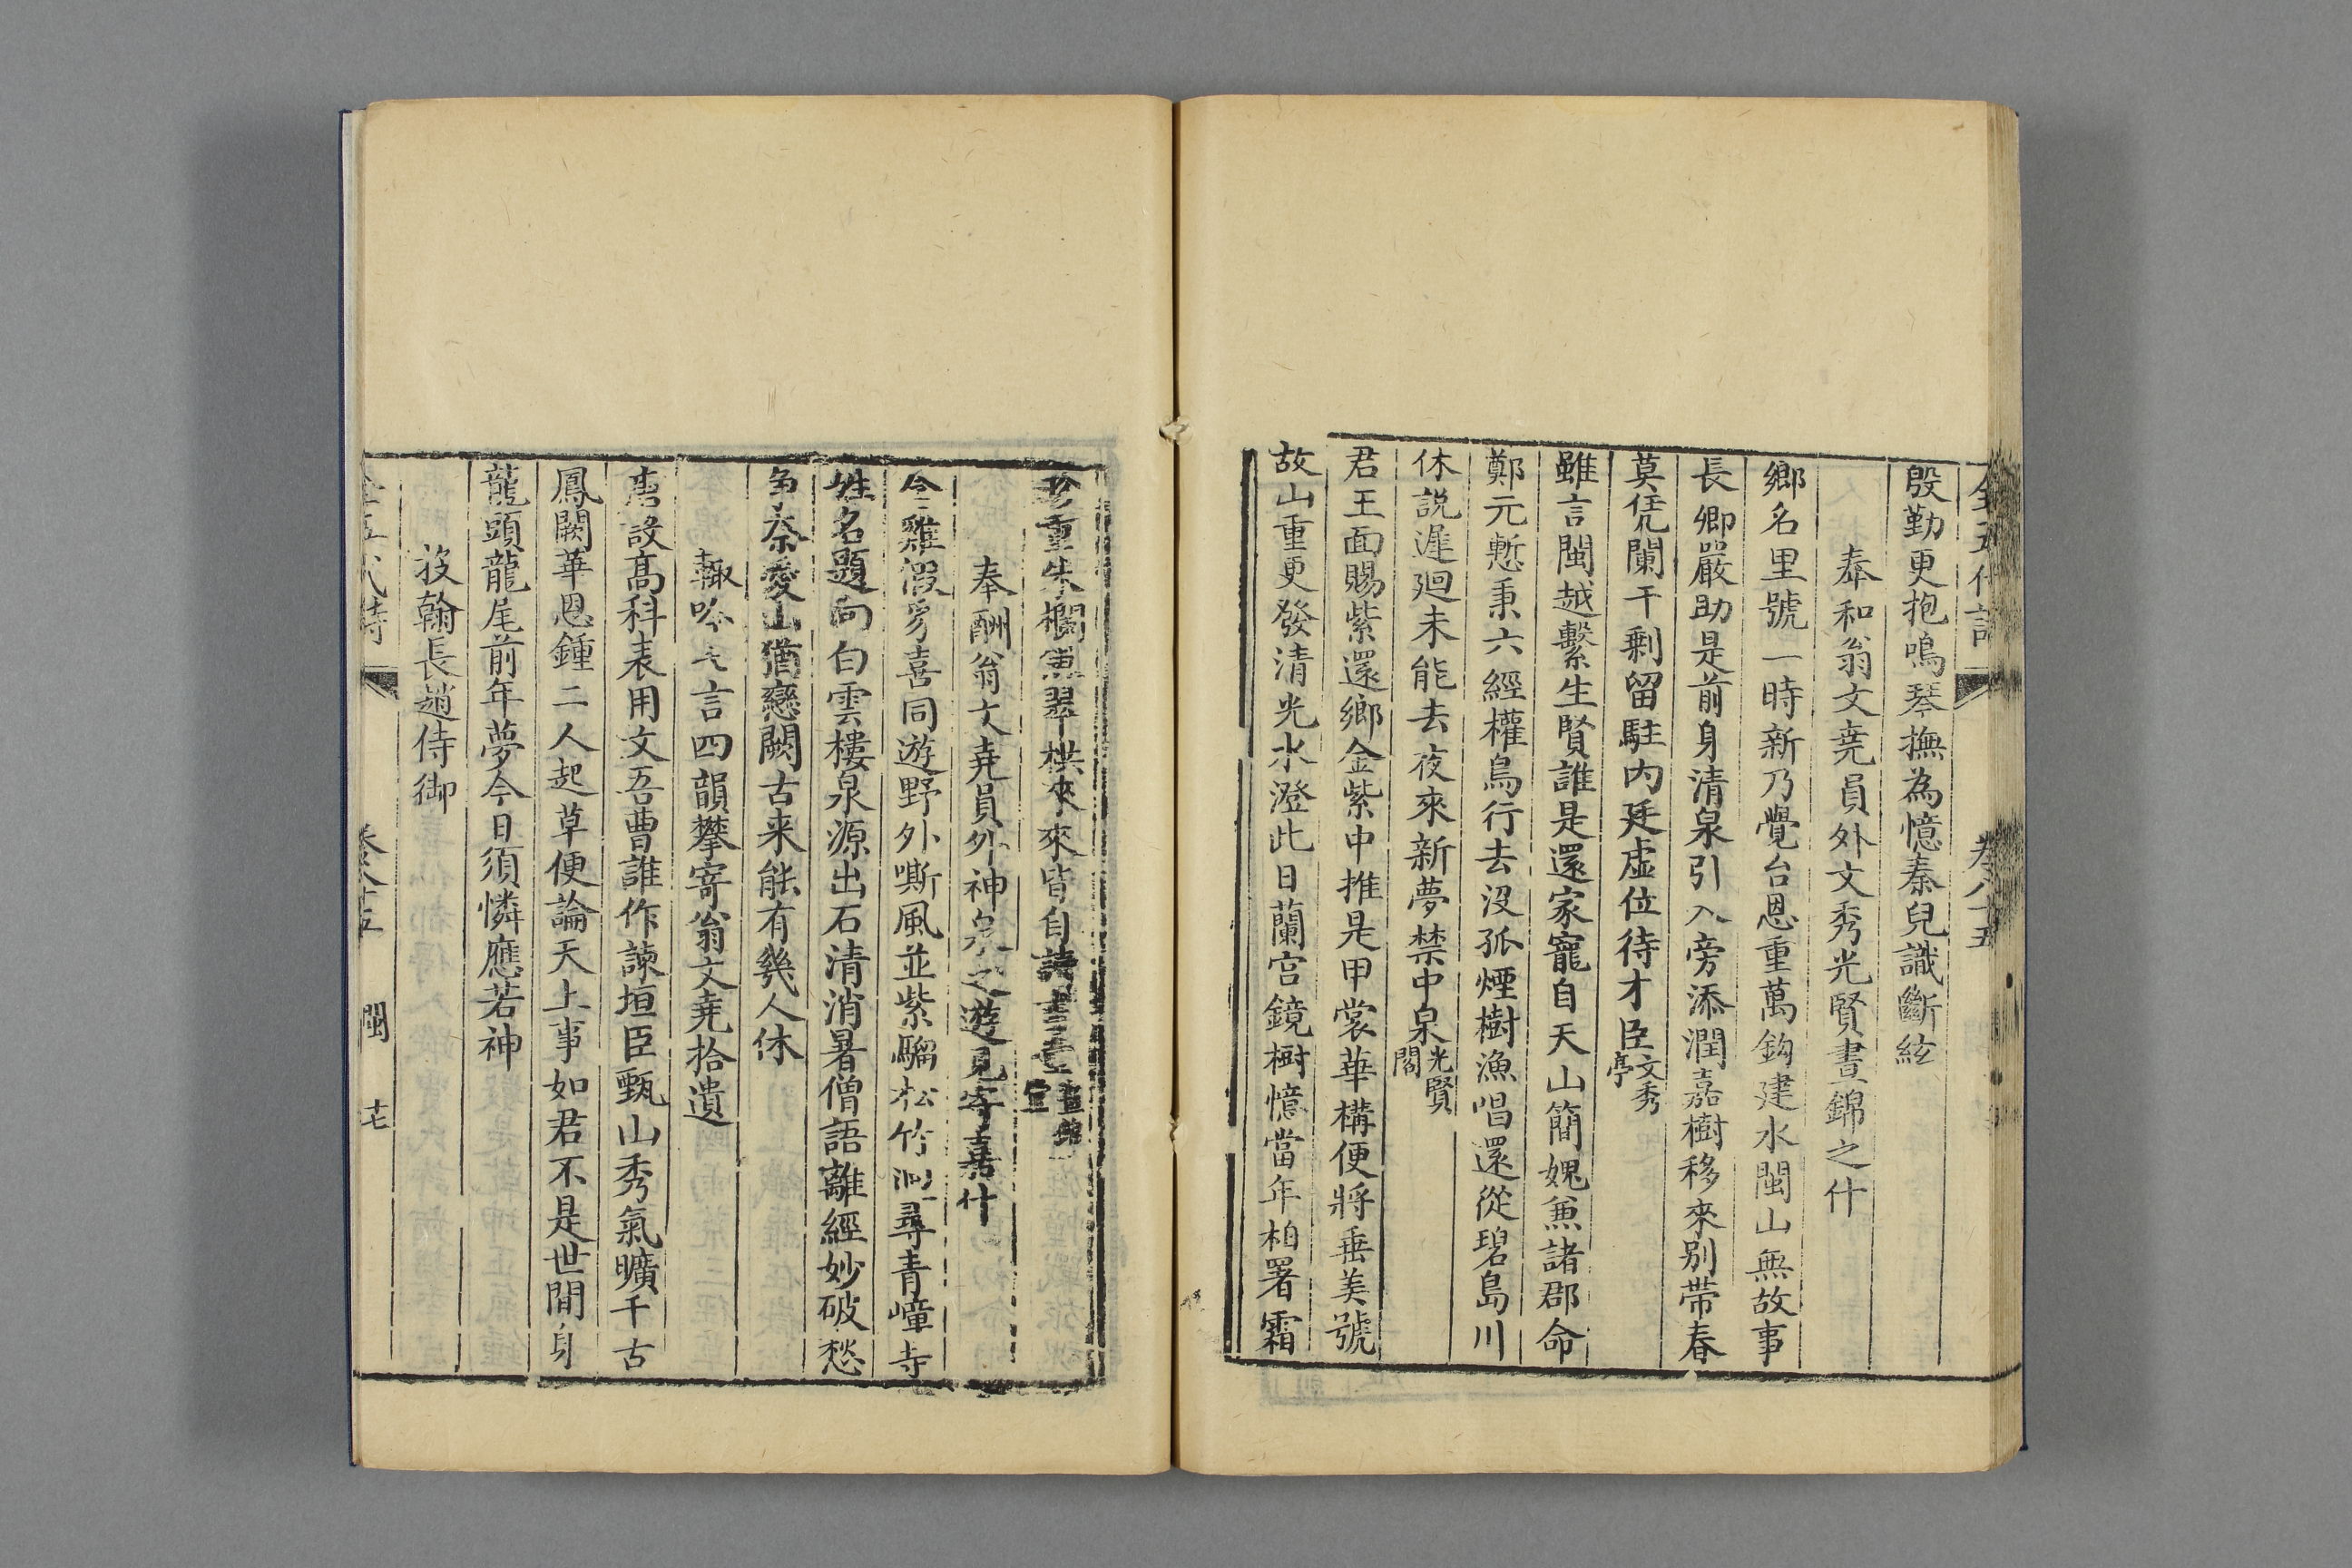 全五代詩 卷八十五
殷勤更抱鳴琴撫為憶秦兒識斷絃
奉和翁文堯員外文秀光賢晝錦之什
鄉名里號一時新乃覺台恩重萬鈞建水閩山無故事
長卿嚴助是前身清泉引入旁添潤嘉樹移來别帶春
莫凭闌干剩留駐内廷虛位待才臣文秀亭
雖言閩越繫生賢誰是還家寵自天山簡媿兼諸郡命
鄭元慙秉六經權鳥行去没孤煙樹漁唱還從碧島川
休説遲廻未能去夜來新夢禁中泉光賢閣
君王面賜紫還鄉金紫中推是甲裳華構便將垂美號
故山重更發清光水澄此日蘭宫鏡樹憶當年柏署霜
珍重朱欄兼翠栱來來皆自讀書堂晝錦堂
奉酬翁文堯員外神泉之遊見寄嘉什
含雞假豸喜同遊野外嘶風並紫騮松竹迥尋青嶂寺
姓名題向白雲樓泉源出石清消暑僧語離經妙破愁
争奈愛山猶戀闕古来能有幾人休
輙吟七言四韻攀寄翁文堯拾遺
唐設髙科表用文吾曹誰作諫垣臣甄山秀氣曠千古
鳳闕華恩鍾二人起草便論天上事如君不是世間身
龍頭龍尾前年夢今日須憐應若神
投翰長趙侍御
全五代詩 卷八十五 閩 十七